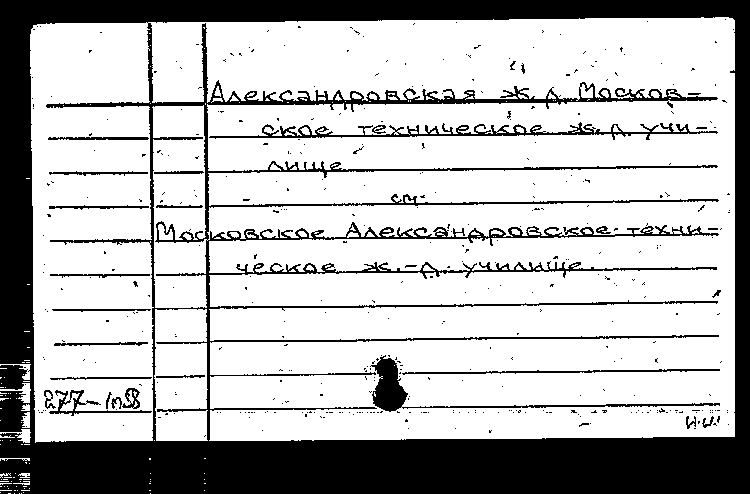 Александровская ж.д. Москов=
ское техническое ж.д. учи-
лище
см.
Московское Александровское техни-
ческое ж.-д. училище.
277—